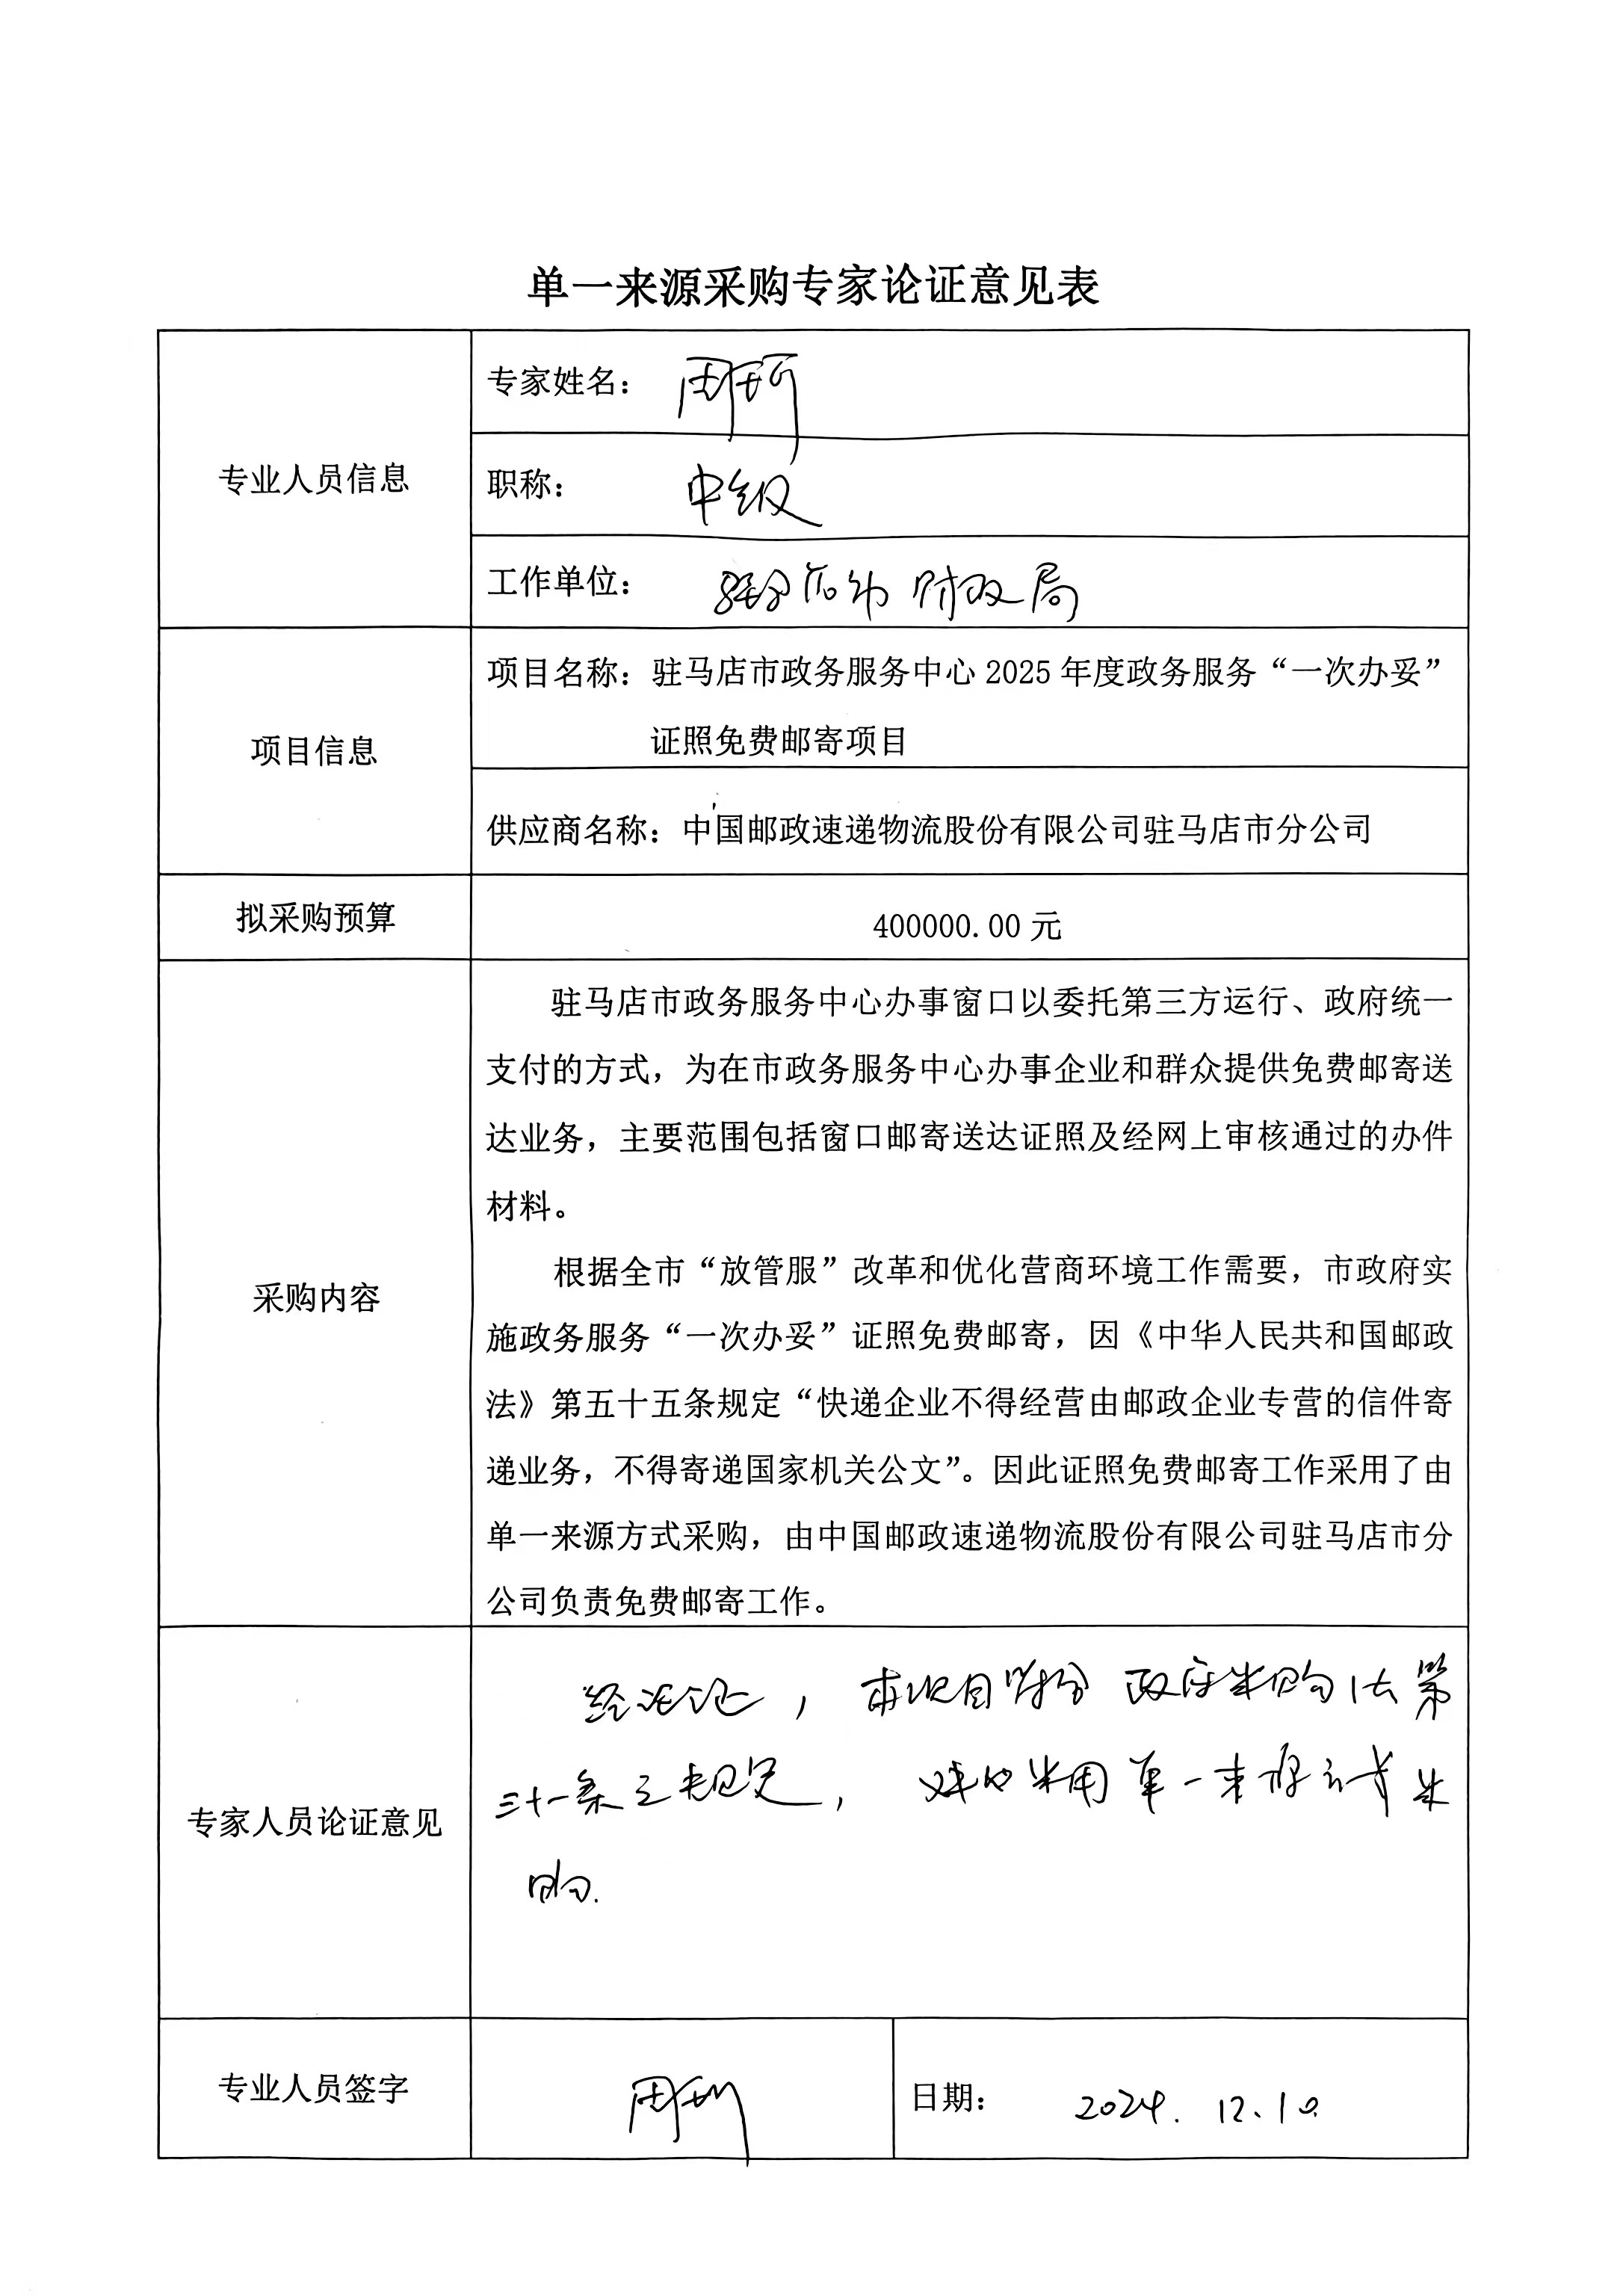 单一来源采购专家论证意见表
专业人员信息
专家姓名： 周珂
职称： 中级
工作单位： 驻马店市财政局
项目信息
项目名称：驻马店市政务服务中心 2025 年度政务服务“一次办妥”
证照免费邮寄项目
供应商名称：中国邮政速递物流股份有限公司驻马店市分公司
拟采购预算
400000.00 元
采购内容
驻马店市政务服务中心办事窗口以委托第三方运行、政府统一
支付的方式，为在市政务服务中心办事企业和群众提供免费邮寄送
达业务，主要范围包括窗口邮寄送达证照及经网上审核通过的办件
材料。
根据全市“放管服”改革和优化营商环境工作需要，市政府实
施政务服务“一次办妥”证照免费邮寄，因《中华人民共和国邮政
法》第五十五条规定“快递企业不得经营由邮政企业专营的信件寄
递业务，不得寄递国家机关公文”。因此证照免费邮寄工作采用了由
单一来源方式采购，由中国邮政速递物流股份有限公司驻马店市分
公司负责免费邮寄工作。
专家人员论证意见
经论证，本项目符合政府采购法第
三十一条之规定，建议采用单一来源方式采
购.
专业人员签字
周珂
日期： 2024. 12.10